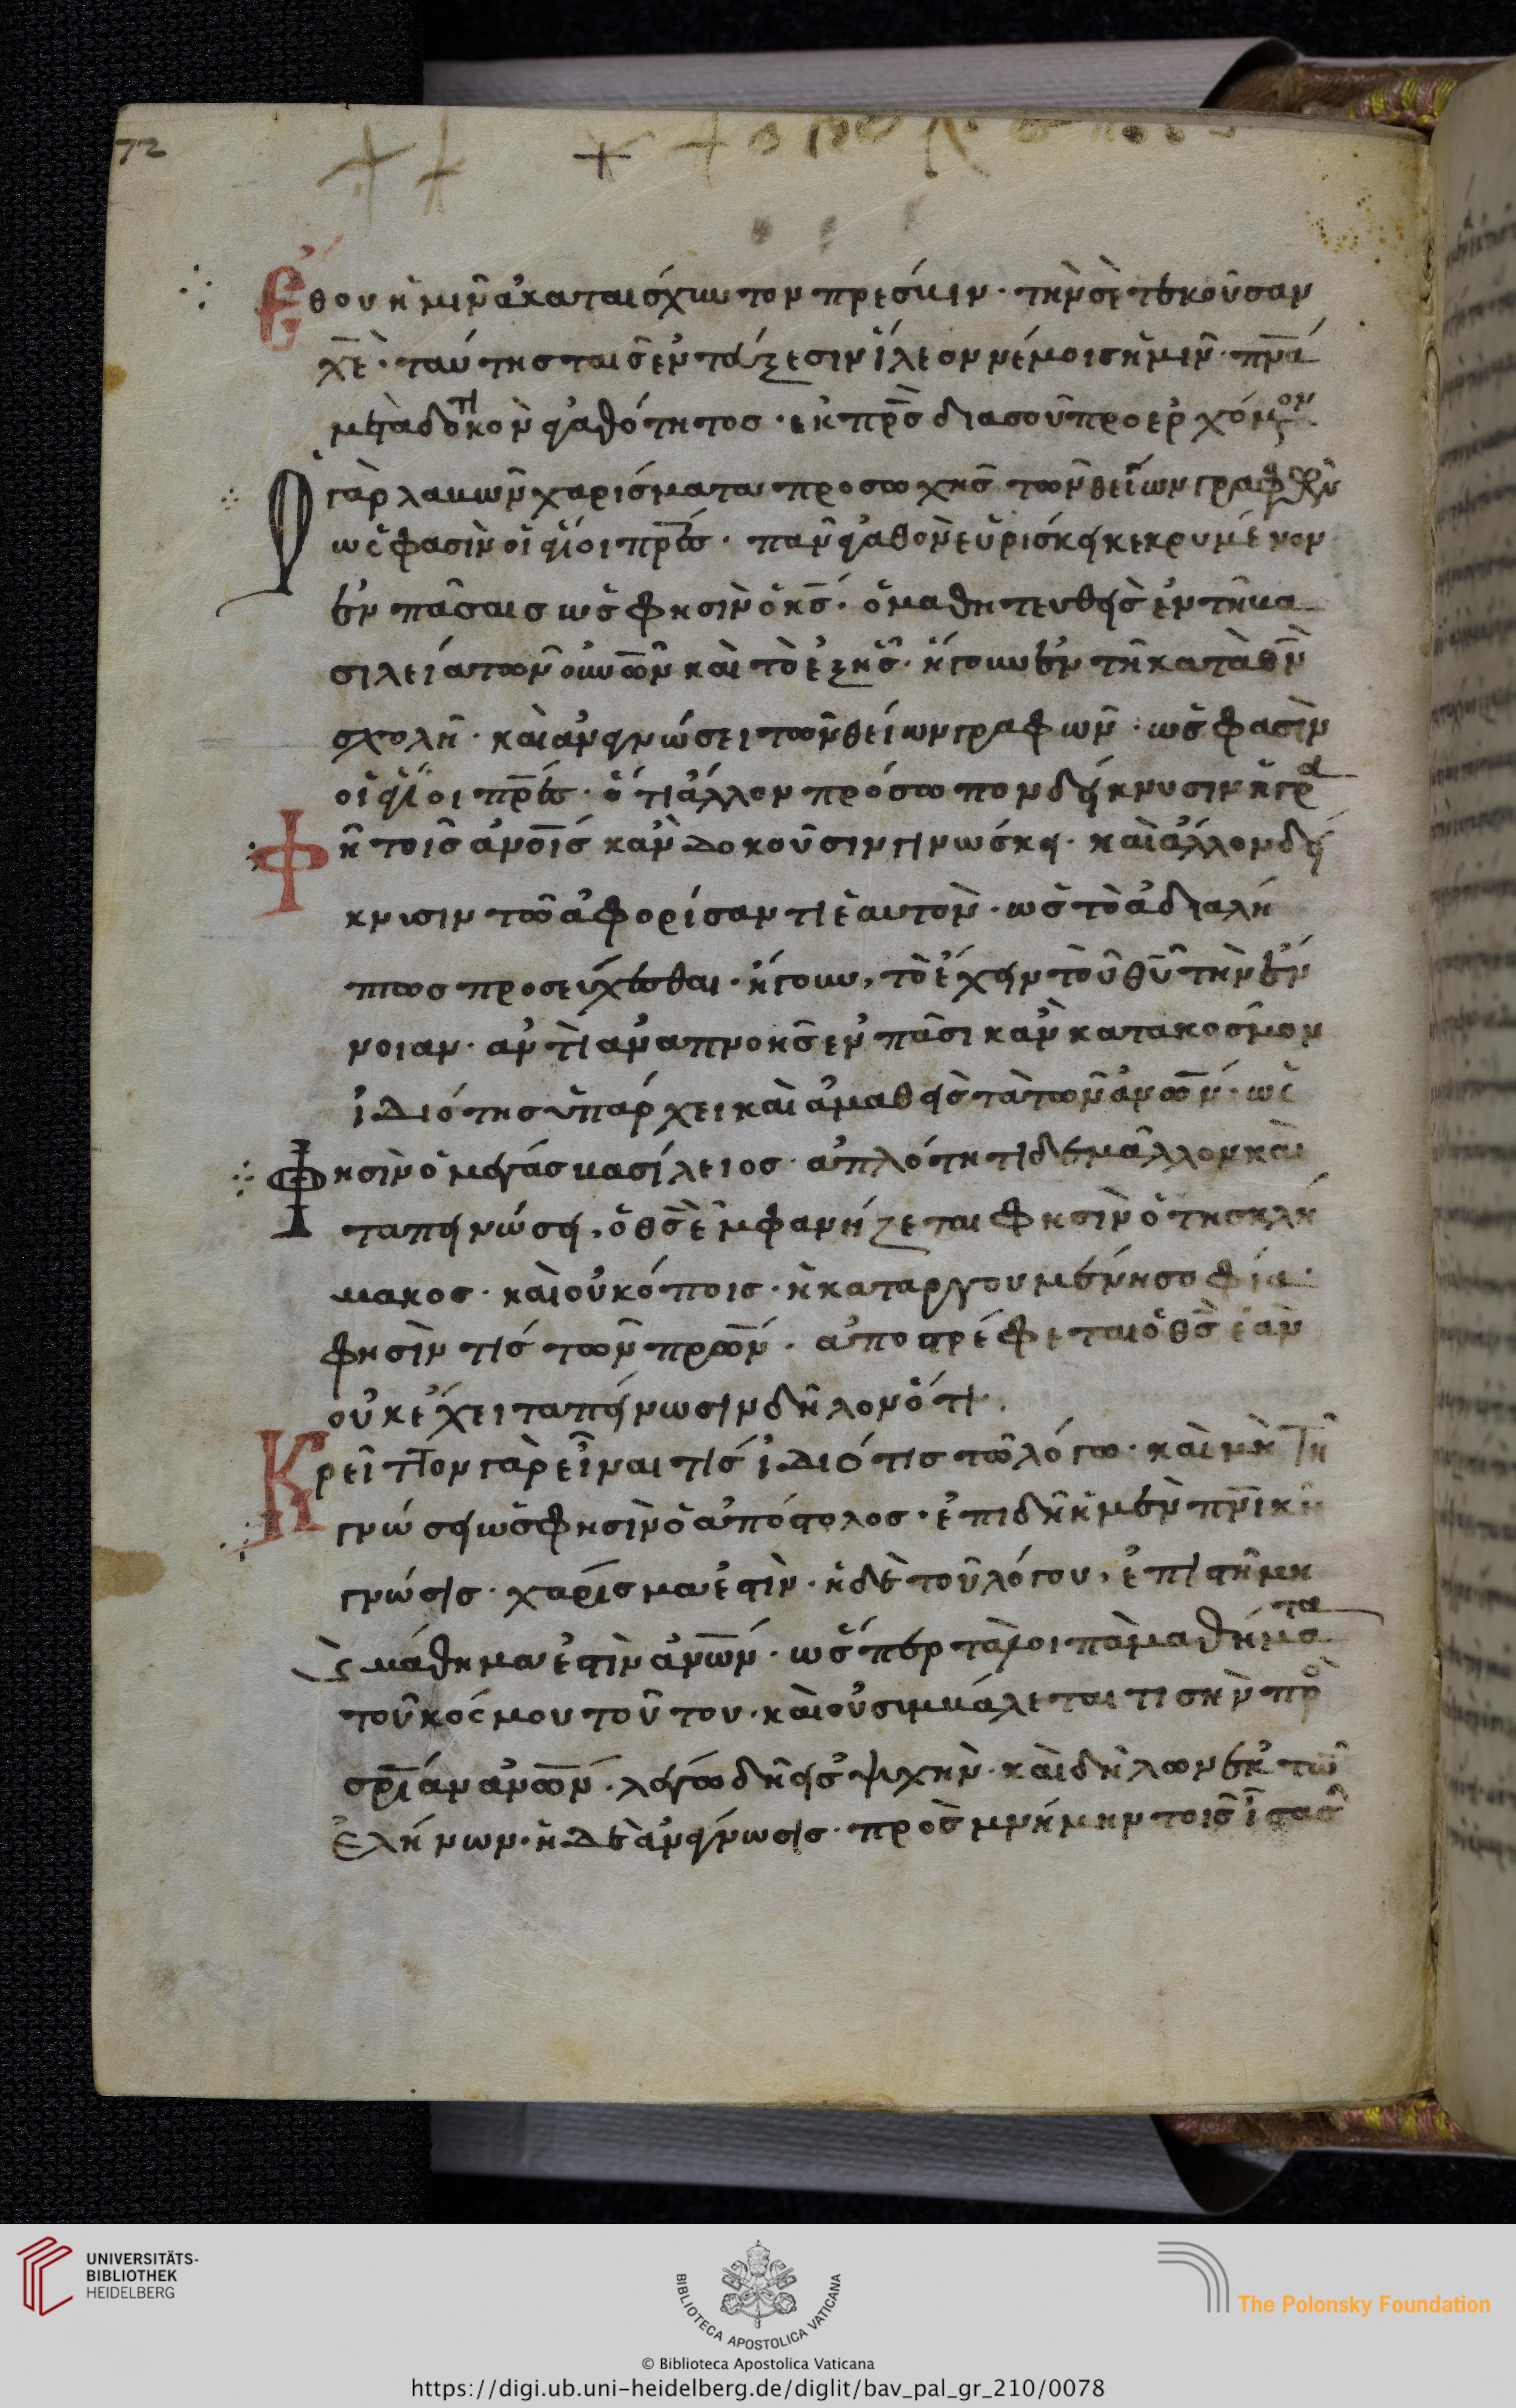 72
Ἔθου ἡμῖν ἀκαταίσχυντον πρέσβιν· τὴν σὲ τεκοῦσαν
χε̅· ταύτης ταῖς ἐντεύξεσιν ἵλεον νέμοις ἡμῖν· πνᾱ
μεταδοτικὸν ἀγαθότητος· ἐκ πρς̅ διὰ σοῦ προερχόμενον
Ὁ γὰρ λαβὼν χάρισμα τῶ προσοχῆς τῶν θείων γραφῶν
ὥς φασιν οἱ ἅγιοι πρε̅ς· πᾶν ἀγαθὸν εὑρίσκει κεκρυμένον
ἐν πάσαις ὥς φησιν ὁ κς̅· ὁ μαθητευθεὶς ἐν τῆ βα
σιλεία τῶν οὐνω̅ν καὶ τὸ ἑξῆς· ἤγουν ἐν τῆ κατὰ θν̅
σχολῆ· καὶ ἀναγνώσει τῶν θείων γραφῶν· ὥς φασιν
οἱ ἅγιοι πρε̅ς· ὅτι ἄλλον πρόσωπον δείκνυσιν ἡ γρα
φὴ τοῖς ἀνοι̅ς κἂν δοκοῦσιν γινώσκει· καὶ ἄλλον δεί
κνισιν τῶ ἀφορίσαντι ἑαυτὸν· ὡς τὸ ἀδιαλή
πτως προσεύχεσθαι· ἤγουν, τὸ ἔχειν τοῦ θυ̅ τὴν ἔν
νοιαν· ἀντὶ ἀναπνοῆς ἐν πᾶσι κἂν κατα κόσμον
ἰδιότης ὑπάρχει καὶ ἀμαθεὶς τὰ τῶν ἀνω̅ν· ὥς
φησιν ὁ μέγας βασίλειος· ἁπλότητι δὲ μᾶλλον καὶ
ταπεινώσει, ὁ θς̅ ἐμφανήζεται φησὶν ὁ τῆς κλή
μακος· καὶ οὐ κόποις· ἡ καταργουμένη σοφία·
φησίν τίς τῶν πρω̅ν· ἀποστρέφεται ὁ θς̅ ἐὰν
οὐκ ἔχει ταπείνωσιν δηλονότι·
Κρεῖττον γὰρ εἶναι τίς ἰδιότις τῶ λόγω· καὶ μὴ τῆ
γνώσει ὥς φησιν ὁ ἀπόστολος· ἐπιδὴ ἡ μὲν πνικὴ
γνῶσις· χάρισμα ἐστὶν· ἡ δὲ τοῦ λόγου, ἐπιστήμη
ς μάθημα ἐστὶν ἀνω̅ν· ὥσπερ τὰ λοιπὰ μαθήματα
τοῦ κόσμου τούτου· καὶ οὐ σιμβάλεται τι σην πρὸ
σρίαν ἀνω̅ν· λέγω δὴ εἰς ψυχὴν· καὶ δῆλον ἐκ τῶν
ἑλήνων· ἡ δὲ ἀνάγνωσις· πρὸς μνήμην τοῖς ἴσασι
UNIVERSITÄTS-
BIBLIOTHEK
HEIDELBERG
BIBLIOTECA APOSTOLICA VATICANA
The Polonsky Foundation
© Biblioteca Apostolica Vaticana
https://digi.ub.uni-heidelberg.de/diglit/bav_pal_gr_210/0078